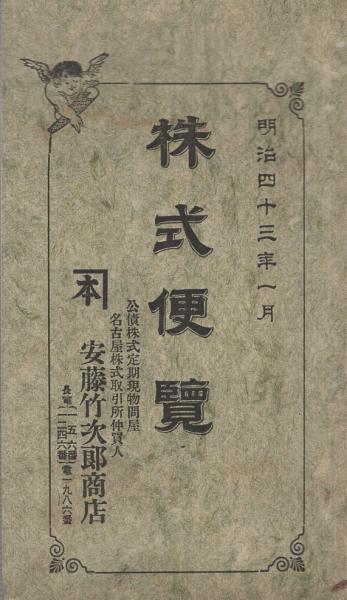 明治四十三年一月
株式便覽
公債株式定期現物問屋
名古屋株式取引所仲買人
本
安藤竹次郎商店
長電
一五六番
二二四六番
電一九八六番